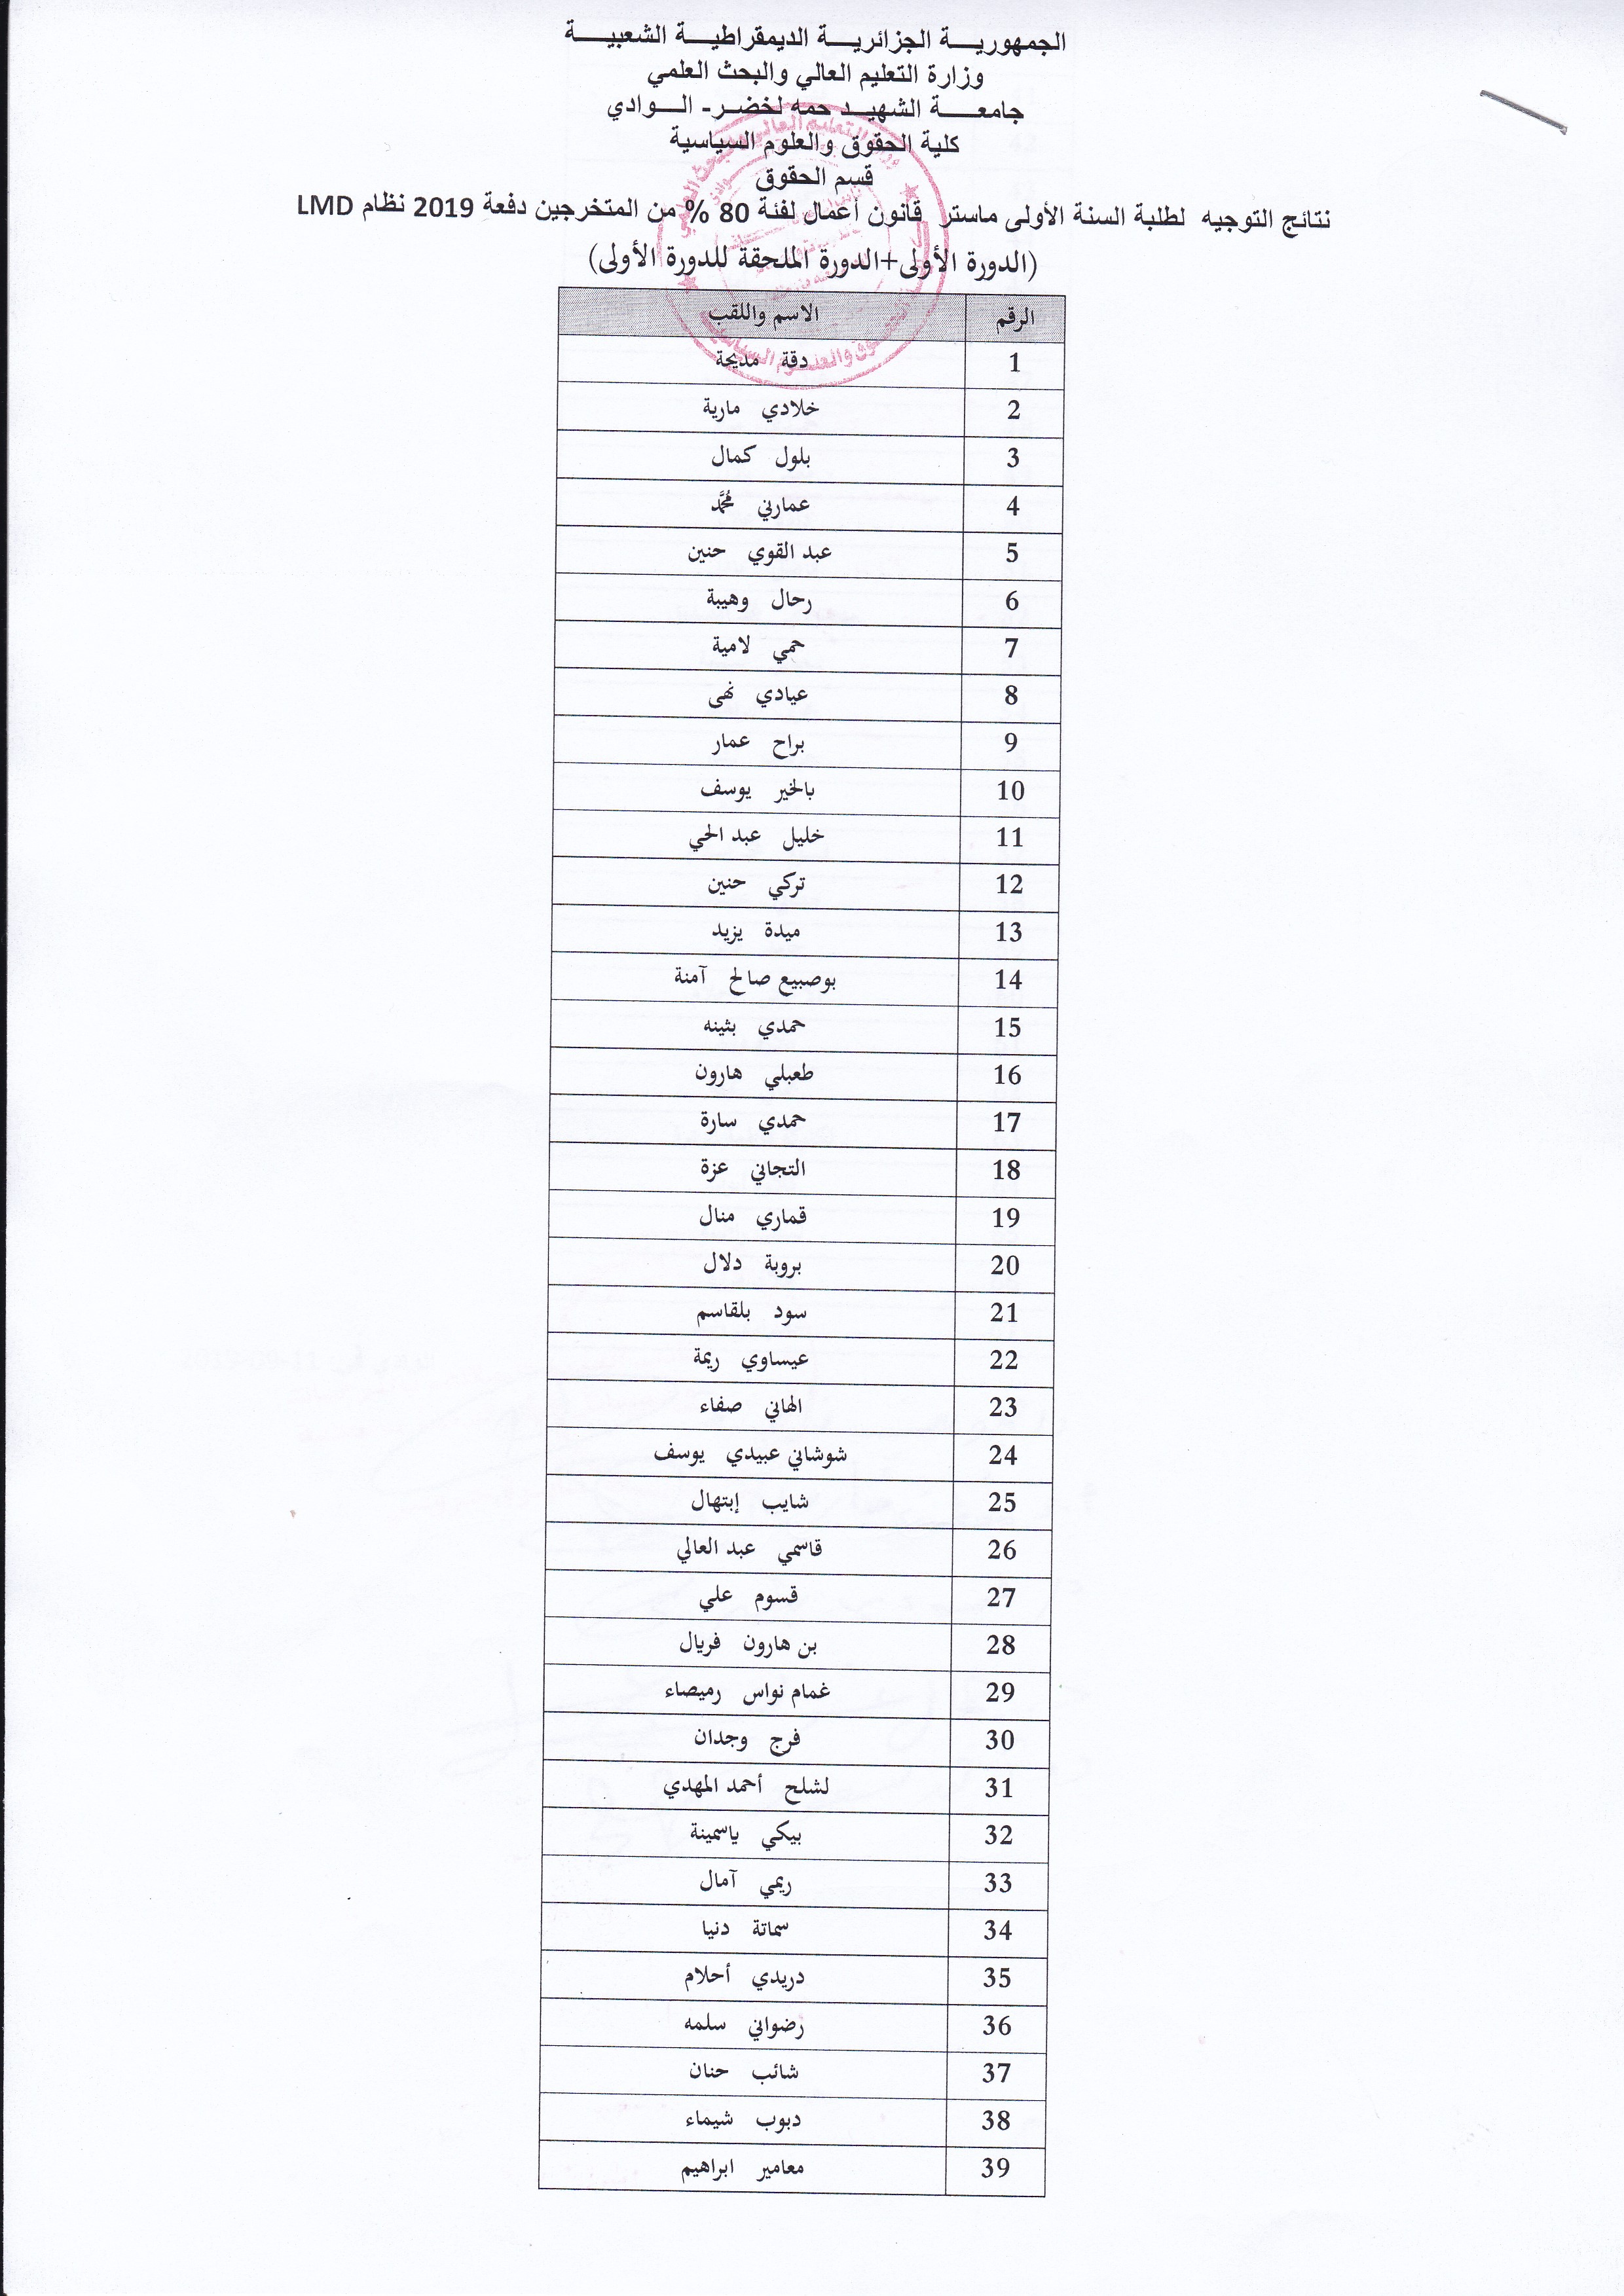 الجمهوريـــة الجزائريـــة الديمقراطيـــة الشعبيـــة
وزارة التعليم العالي والبحث العلمي
جامعـــة الشهيـد حمه لخضـر- الـــوادي
كلية الحقوق والعلوم السياسية
قسم الحقوق
نتائج التوجيه لطلبة السنة الأولى ماستر قانون أعمال لفئة 80 % من المتخرجين دفعة 2019 نظام LMD
(الدورة الأولى+الدورة الملحقة للدورة الأولى)
الرقم الاسم واللقب
1 دقة مديحة
2 خلادي مارية
3 بلول كمال
4 عمارني محمد
5 عبد القوي حنين
6 رحال وهيبة
7 حمي لامية
8 عيادي نهى
9 براح عمار
10 بالخير يوسف
11 خليل عبد الحي
12 تركي حنين
13 ميدة يزيد
14 بوصبيع صالح آمنة
15 حمدي بثينه
16 طعبلي هارون
17 حمدي سارة
18 التجاني عزة
19 قماري منال
20 بروبة دلال
21 سود بلقاسم
22 عيساوي ريمة
23 الهاني صفاء
24 شوشاني عبيدي يوسف
25 شايب إبتهال
26 قاسمي عبد العالي
27 قسوم علي
28 بن هارون فريال
29 غمام نواس رميصاء
30 فرج وجدان
31 لشلح أحمد المهدي
32 بيكي ياسمينة
33 ريمي آمال
34 سماتة دنيا
35 دريدي أحلام
36 رضواني سلمه
37 شائب حنان
38 دبوب شيماء
39 معامير ابراهيم